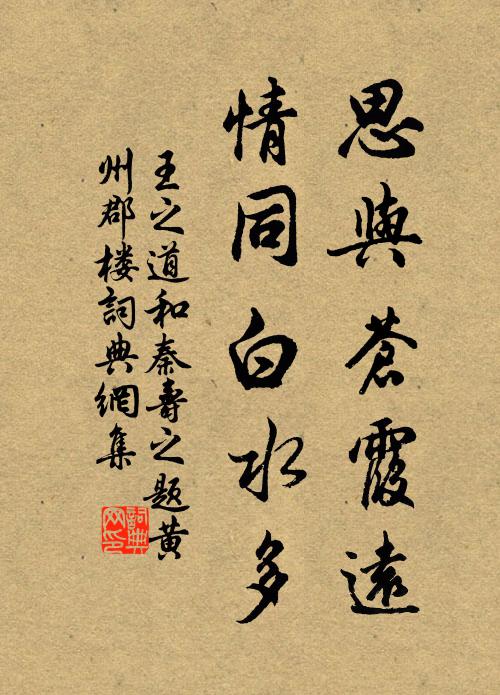 思與蒼霞遠
情同白水多
王之道和秦壽之題黄
州郡楼詞典網集
詞典
网印